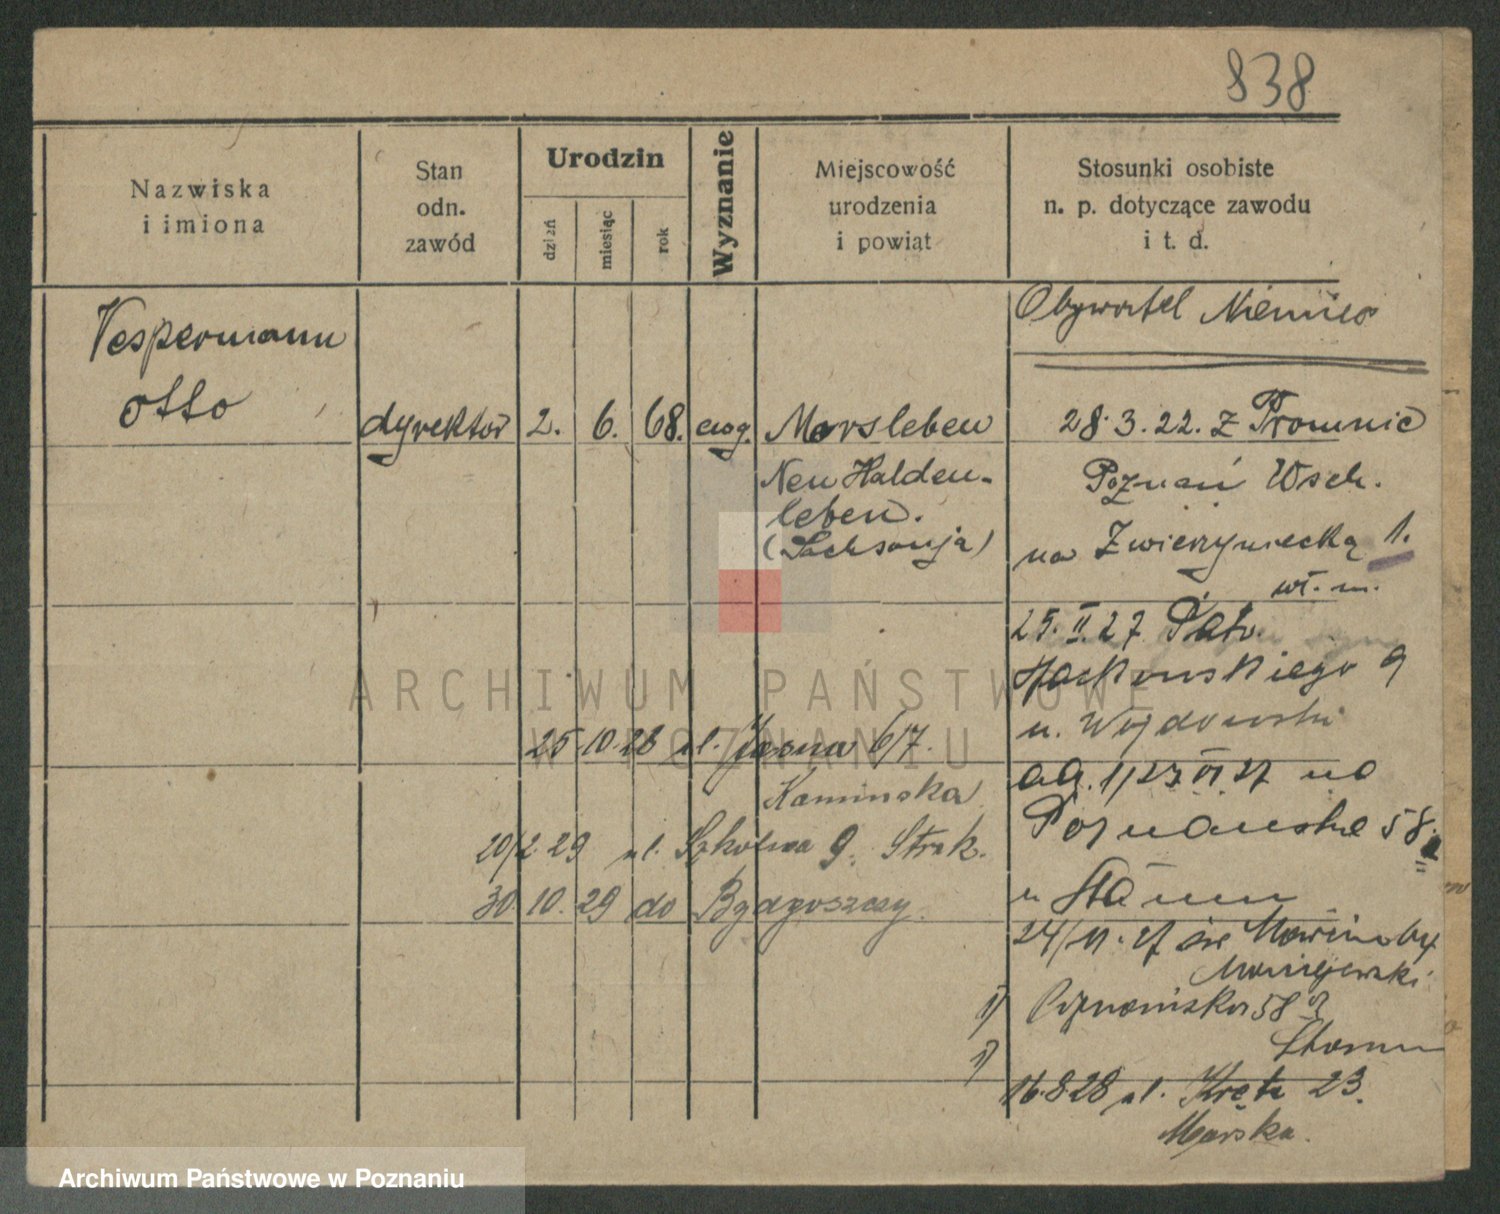 838
Nazwiska
i imiona
Stan
odn.
zawód
Urodzin
dzień
miesiąc
rok
Wyznanie
Miejscowość
urodzenia
i powiat
Stosunki osobiste
n. p. dotyczące zawodu
i t. d.
Vespermann
Otto
dyrektor
2. 6. 68. ewg.
Morsleben
Neu Halden-
leben.
(Sachsonja)
Obywatel Niemiec
28.3.22. z Promnic
Poznań Wsch.
na Zwierzyniecką 1.
wł. m.
25. II. 27 Patr.
Jackowskiego 9
u. Wojdowski
1/23 VI 27 na
Poznańska 58
u Stamm
24/11. 27 św Marcin
Maciejewski
Poznańska 58
Stamm
16.8.28 ul. Kręta 23.
Marska.
25 10.28 ul. Jasna 6/7.
Kaminska
20/2 29 ul. Szkolna 9. Strak.
30. 10. 29 do Bydgoszczy.
ARCHIWUM PAŃSTWOWE
W POZNANIU
Archiwum Państwowe w Poznaniu